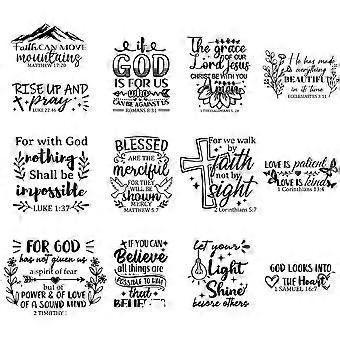 Faith CAN MOVE
mountains
MATTHEW 17:20
RISE UP AND
pray
LUKE 22:46
if
GOD
IS FOR US
CAN BE AGAINST US
ROMANS 8:31
The grace
OF OUR
Lord Jesus
CHRIST BE WITH YOU
He has made
everything
BEAUTIFUL
in it time
ECCLESIASTES 3:11
For with God
nothing
Shall be
impossible
LUKE 1:37
BLESSED
ARE THE
merciful
FOR THEY
WILL BE
shown
MERCY
MATTHEW 5:7
For we walk
BY
faith
not by
Sight
2 Corinthians 5:7
LOVE IS patient
LOVE IS kind
1 Corinthians 13:4
FOR GOD
has not given us
a spirit of fear
but of
POWER & OF LOVE
OF A SOUND MIND
2 TIMOTHY 1
IF YOU CAN
Believe
all things are
POSSIBLE TO HIM
that
BELIEVE
let your
Light
Shine
before others
GOD LOOKS INTO
THE Heart
1 SAMUEL 16:7